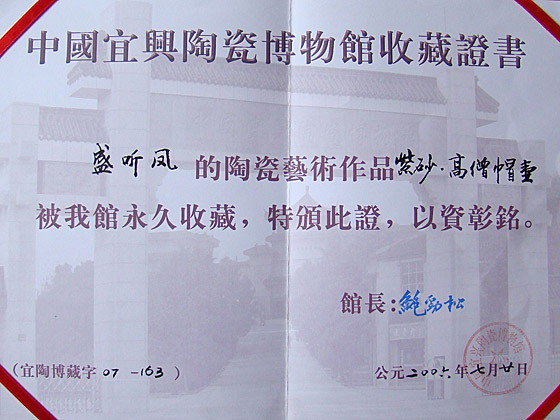 中國宜興陶瓷博物館收藏證書
盛听凤 的陶瓷藝術作品 紫砂·高僧帽壶
被我館永久收藏，特頒此證，以資彰銘。
館長：鲍劲松
（宜陶博藏字 07 -163 ）
公元2006年七月廿日